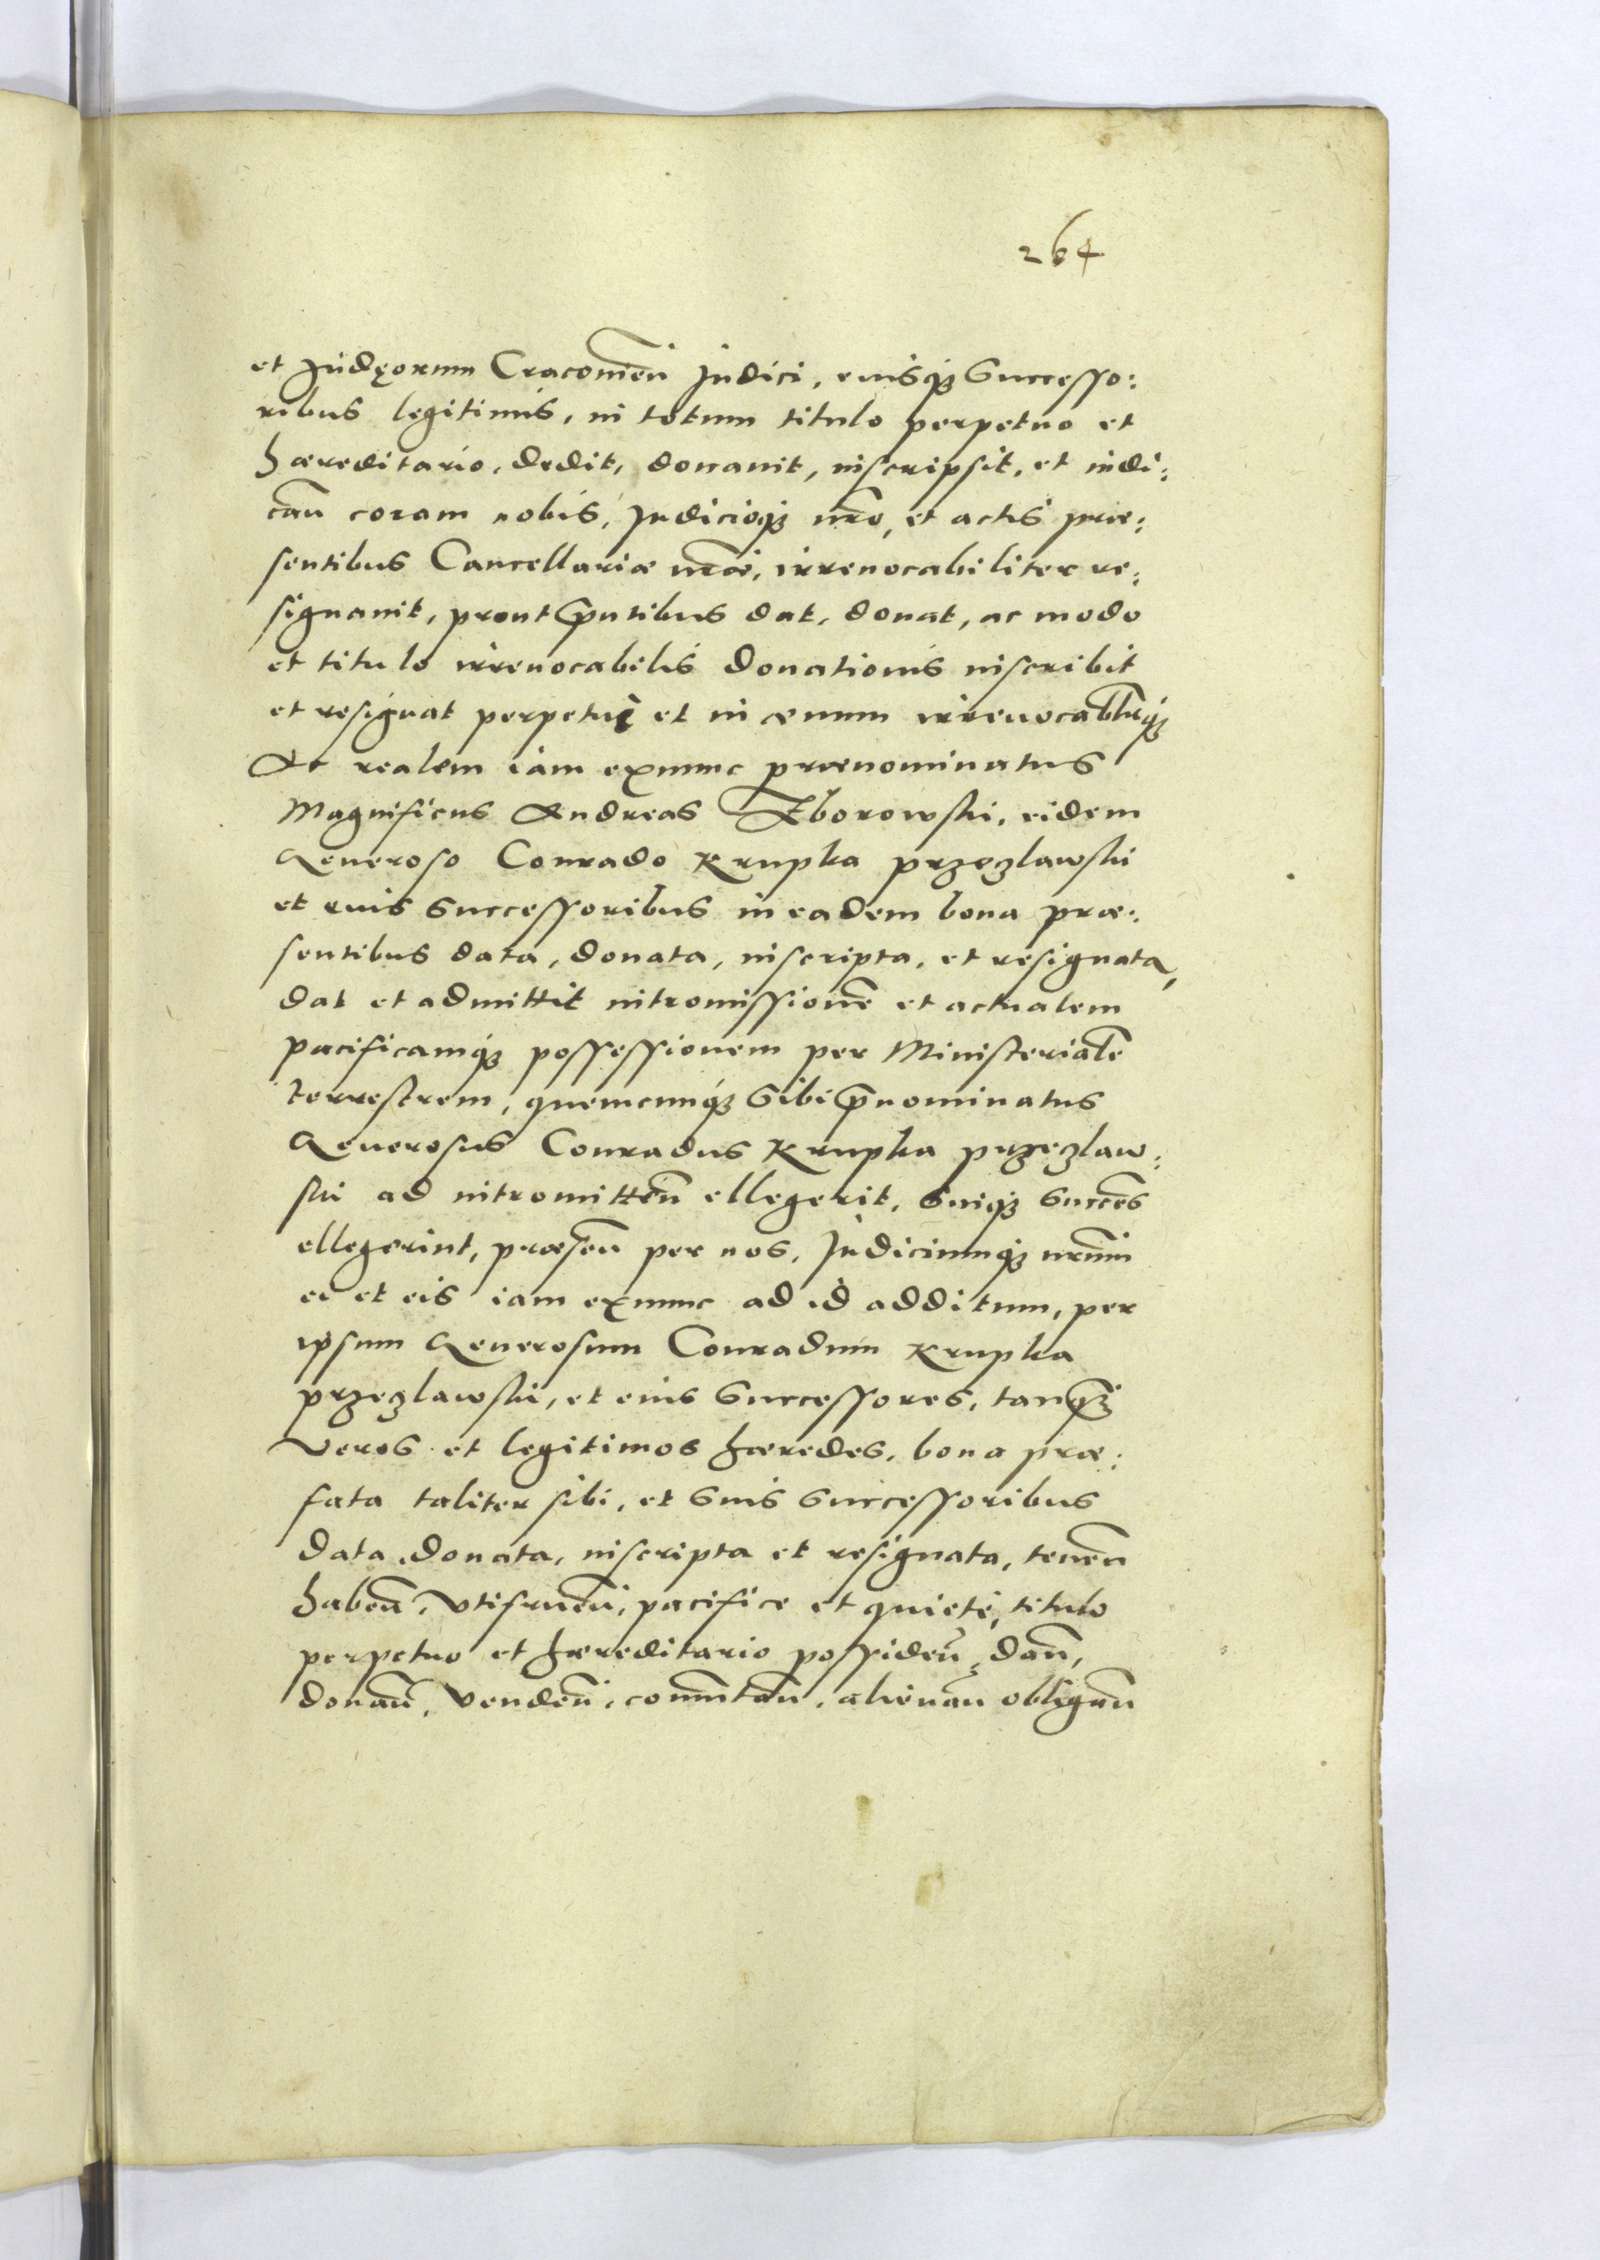 264
et Judęorum Cracovien̄ Judici, eiusq́ꝫ Successo:
ribus legitimis, in totum titulo perpetuo et
hæreditario, dedit, donauit, inscripsit, et indi:
can̄ coram nobis, Judicioq́ꝫ nr̄o, et actis præ:
sentibus Cancellariæ nr̄æ, irreuocabiliter re:
signauit, prout p̄ntibus dat, donat, ac modo
et titulo irreuocabilis donationis inscribit
et resignat perpetuè et in æuum irreuocabl̄rq́ꝫ
Ac realem iam exnunc prænominatus
Magnificus Andreas Zborowski, eidem
Generoso Conrado Krupka przeczlawski
et euis Successoribus in eadem bona præ:
sentibus data, donata, inscripta, et resignata,
dat et admittit intromissionē et actualem
pacificamq́ꝫ possessionem per Ministerialē
terrestrem, quemcunq́ꝫ Sibi p̄nominatus
Generosus Conradus Krupka przeczlaw:
ski ad intromitten̄ ellegerit, Suiq́ꝫ Succēs
ellegerint, præsen̄ per nos, Judiciumq́ꝫ nr̄um
ei et eis iam exnunc ad id additum, per
ipsum Generosum Conradum Krupka
przeczlawski, et eius Successores, tanq̄ꝫ
Veros et legitimos hæredes, bona præ:
fata taliter sibi, et Suis Successoribus
data, donata, inscripta et resignata, tenen̄
haben̄, Vtifruen̄, pacifice et quietè, titulo
perpetuo et hæreditario possiden̄, dan̄,
donan̄, Venden̄, com̄utan̄, alienan̄ obligan̄